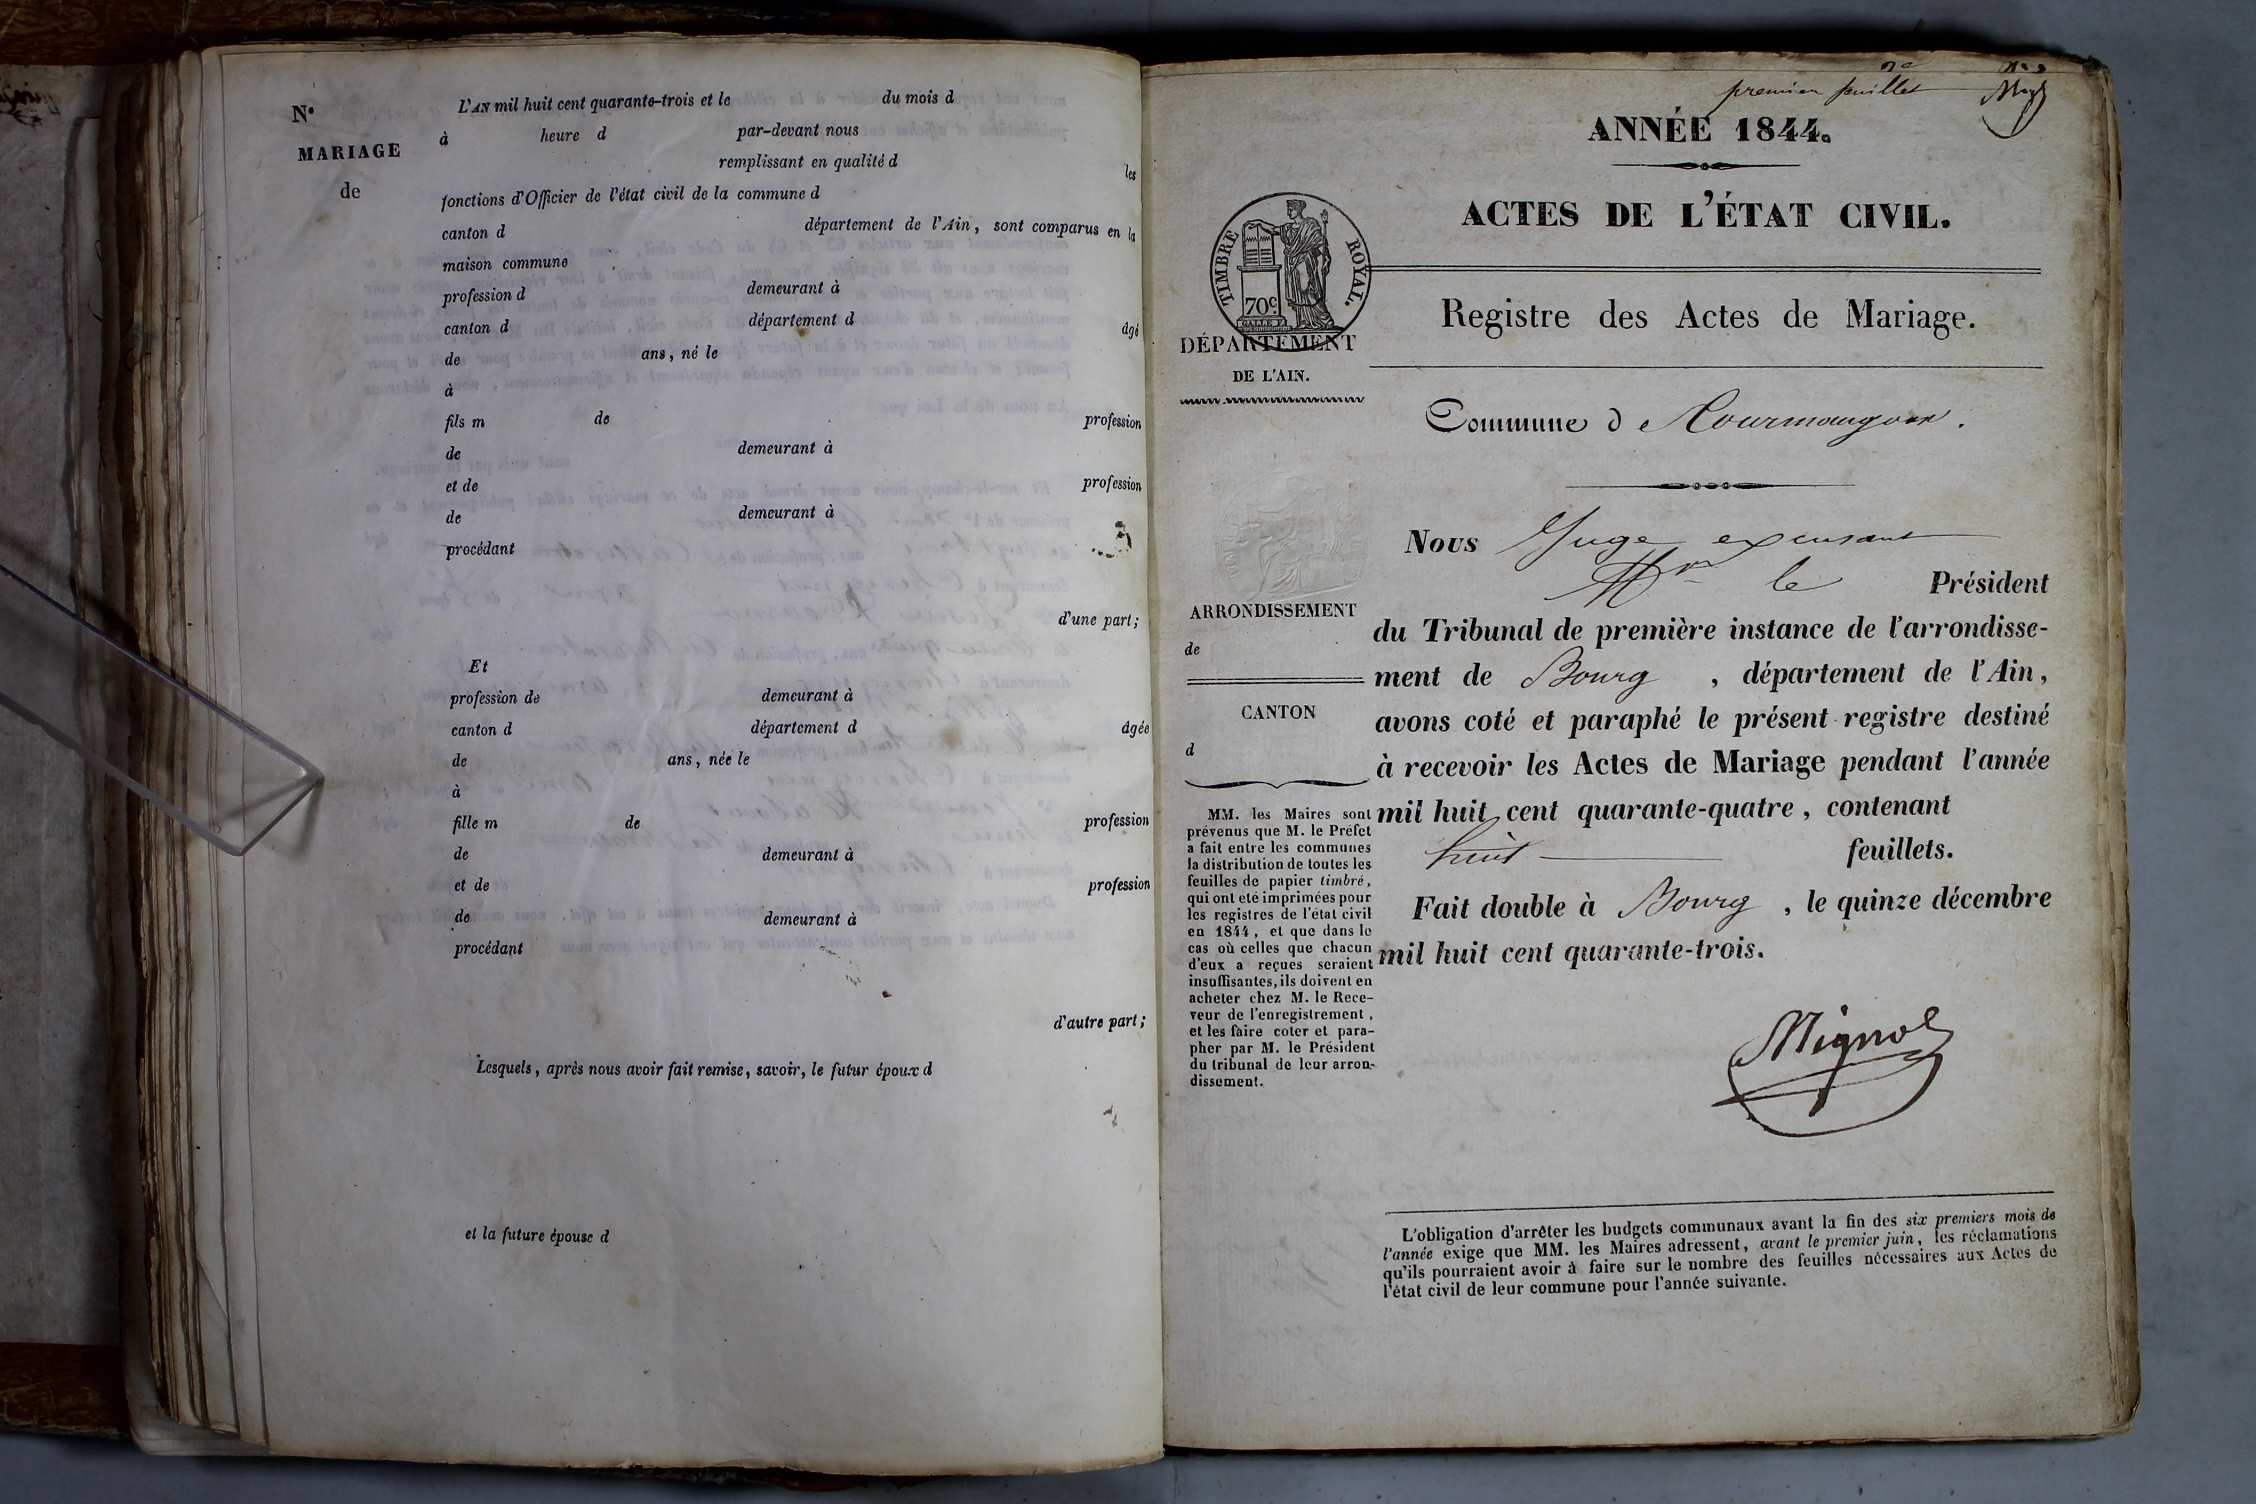 N°
MARIAGE
de
L'AN mil huit cent quarante-trois et le du mois d
à heure d par-devant nous
remplissant en qualité d les
fonctions d'Officier de l'état civil de la commune d
canton d département de l'Ain, sont comparus en la
maison commune
profession d demeurant à
canton d département d âgé
de ans, né le
à
fils m de profession
de demeurant à
et de profession
de demeurant à
procédant
d'une part;
Et
profession de demeurant à
canton d département d âgée
de ans, née le
à
fille m de profession
de demeurant à
et de profession
de demeurant à
procédant
d'autre part;
Lesquels, après nous avoir fait remise, savoir, le futur époux d
et la future épouse d
premier feuillet
ANNÉE 1844.
ACTES DE L'ÉTAT CIVIL.
TIMBRE ROYAL.
70c
DÉPARTEMENT
DE L'AIN.
Registre des Actes de Mariage.
Commune d
Nous Juge excusant
Mr le Président
du Tribunal de première instance de l'arrondisse-
ment de Bourg, département de l'Ain,
avons coté et paraphé le présent registre destiné
à recevoir les Actes de Mariage pendant l'année
mil huit cent quarante-quatre, contenant
huit feuillets.
Fait double à Bourg, le quinze décembre
mil huit cent quarante-trois.
Mignot
ARRONDISSEMENT
de
CANTON
d
MM. les Maires sont
prévenus que M. le Préfet
a fait entre les communes
la distribution de toutes les
feuilles de papier timbré,
qui ont été imprimées pour
les registres de l'état civil
en 1844, et que dans le
cas où celles que chacun
d'eux a reçues seraient
insuffisantes, ils doivent en
acheter chez M. le Rece-
veur de l'enregistrement,
et les faire coter et para-
pher par M. le Président
du tribunal de leur arron-
dissement.
L'obligation d'arrêter les budgets communaux avant la fin des six premiers mois de
l'année exige que MM. les Maires adressent, avant le premier juin, les réclamations
qu'ils pourraient avoir à faire sur le nombre des feuilles nécessaires aux Actes de
l'état civil de leur commune pour l'année suivante.